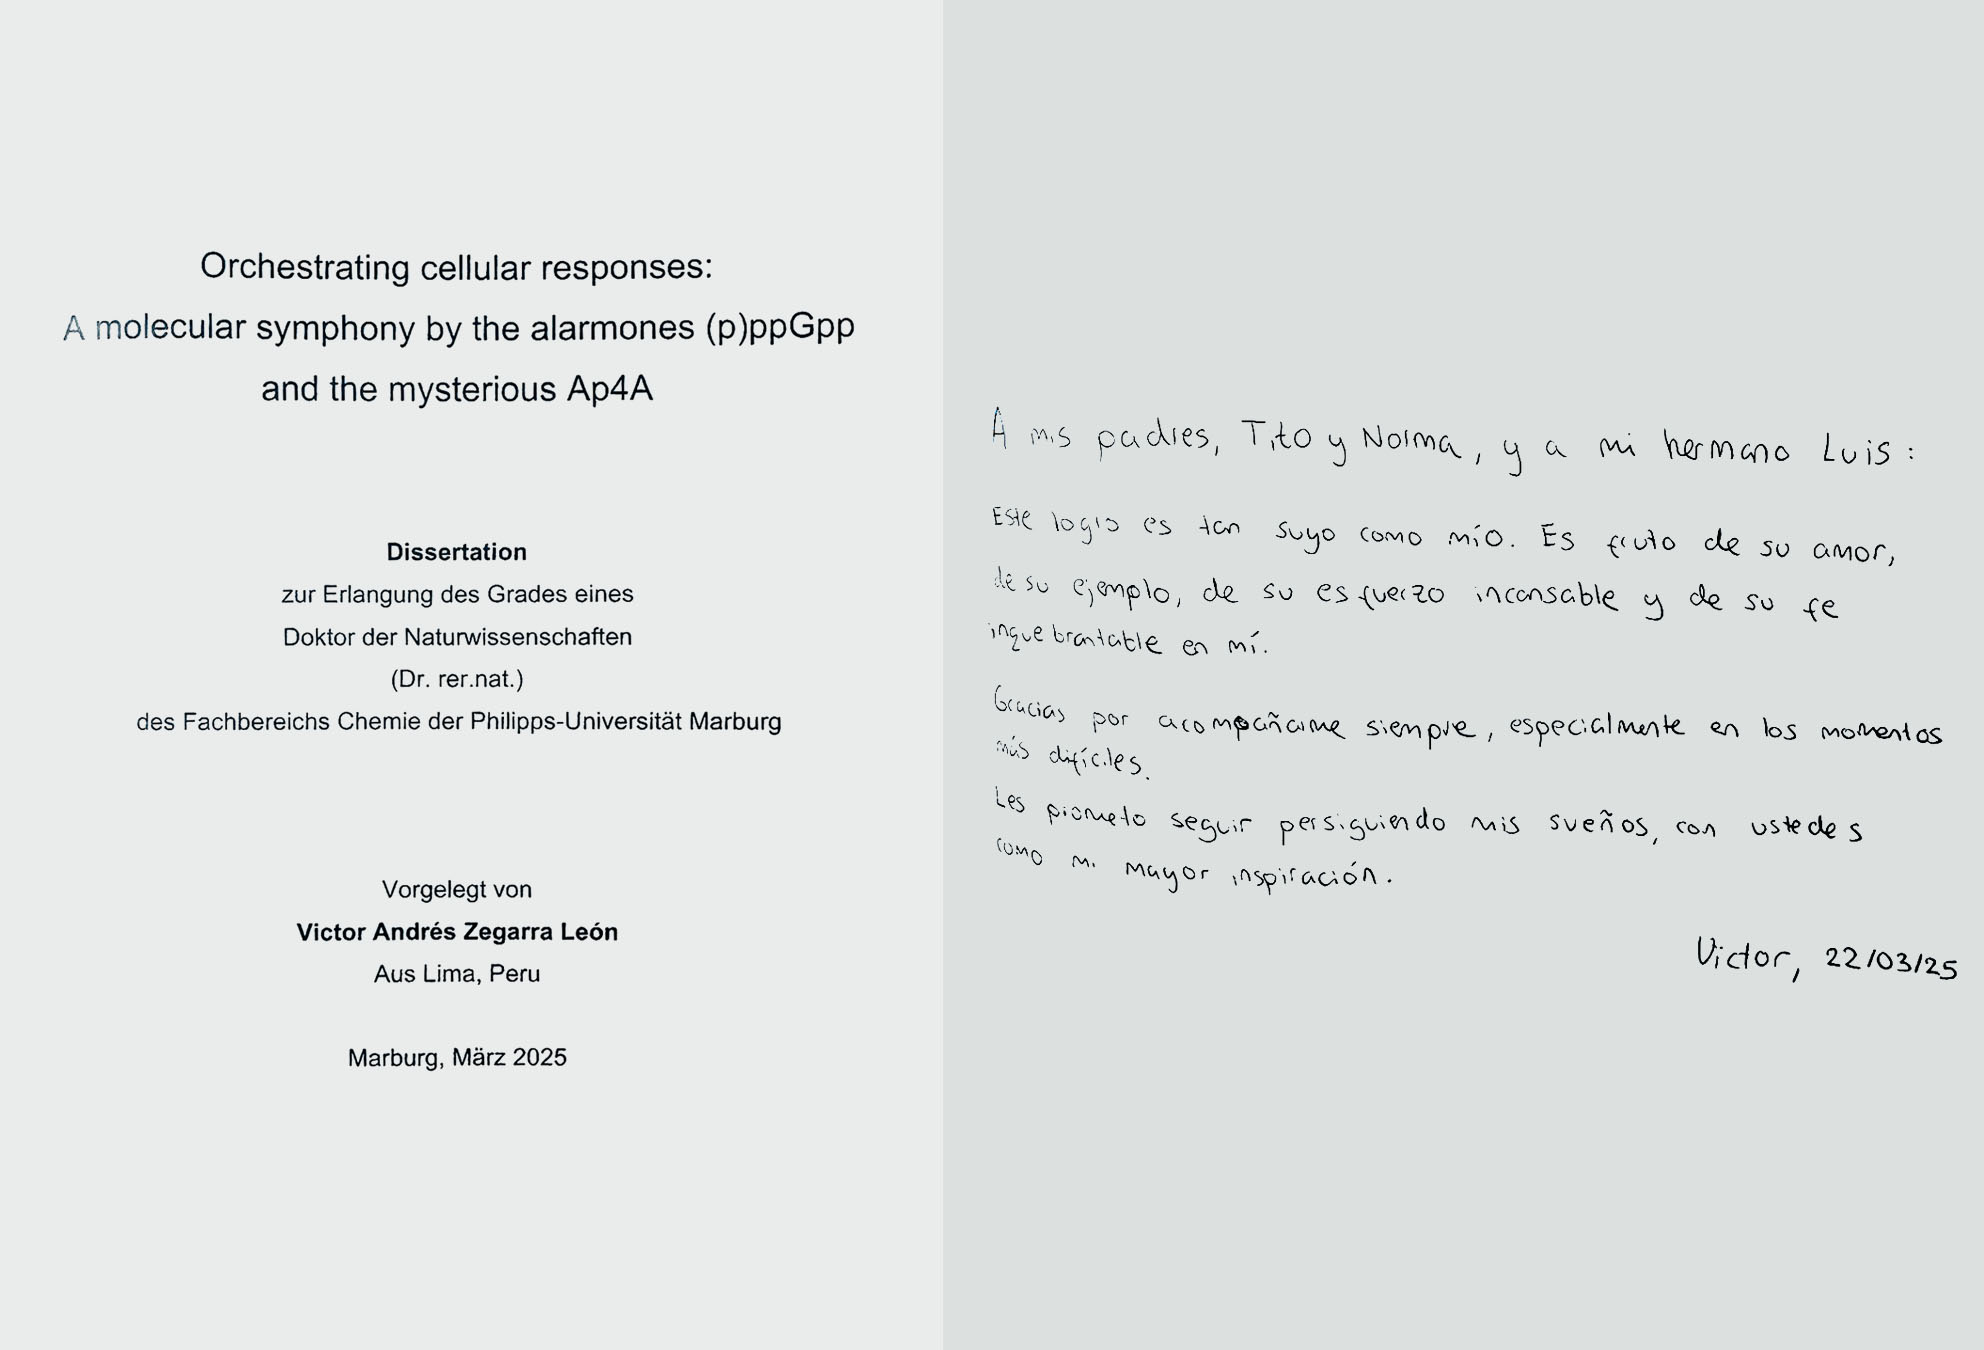 Orchestrating cellular responses:
A molecular symphony by the alarmones (p)ppGpp
and the mysterious Ap4A
Dissertation
zur Erlangung des Grades eines
Doktor der Naturwissenschaften
(Dr. rer.nat.)
des Fachbereichs Chemie der Philipps-Universität Marburg
Vorgelegt von
Victor Andrés Zegarra León
Aus Lima, Peru
Marburg, März 2025
A mis padres, Tito y Norma, y a mi hermano Luis:
Este logro es tan suyo como mío. Es fruto de su amor,
de su ejemplo, de su esfuerzo incansable y de su fe
inquebrantable en mí.
Gracias por acompañarme siempre, especialmente en los momentos
más difíciles.
Les prometo seguir persiguiendo mis sueños, con ustedes
como mi mayor inspiración.
Victor, 22/03/25